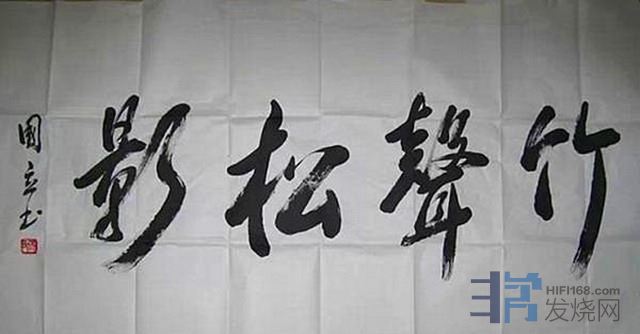 竹聲松影
國立书
HIFI168.com
发烧网